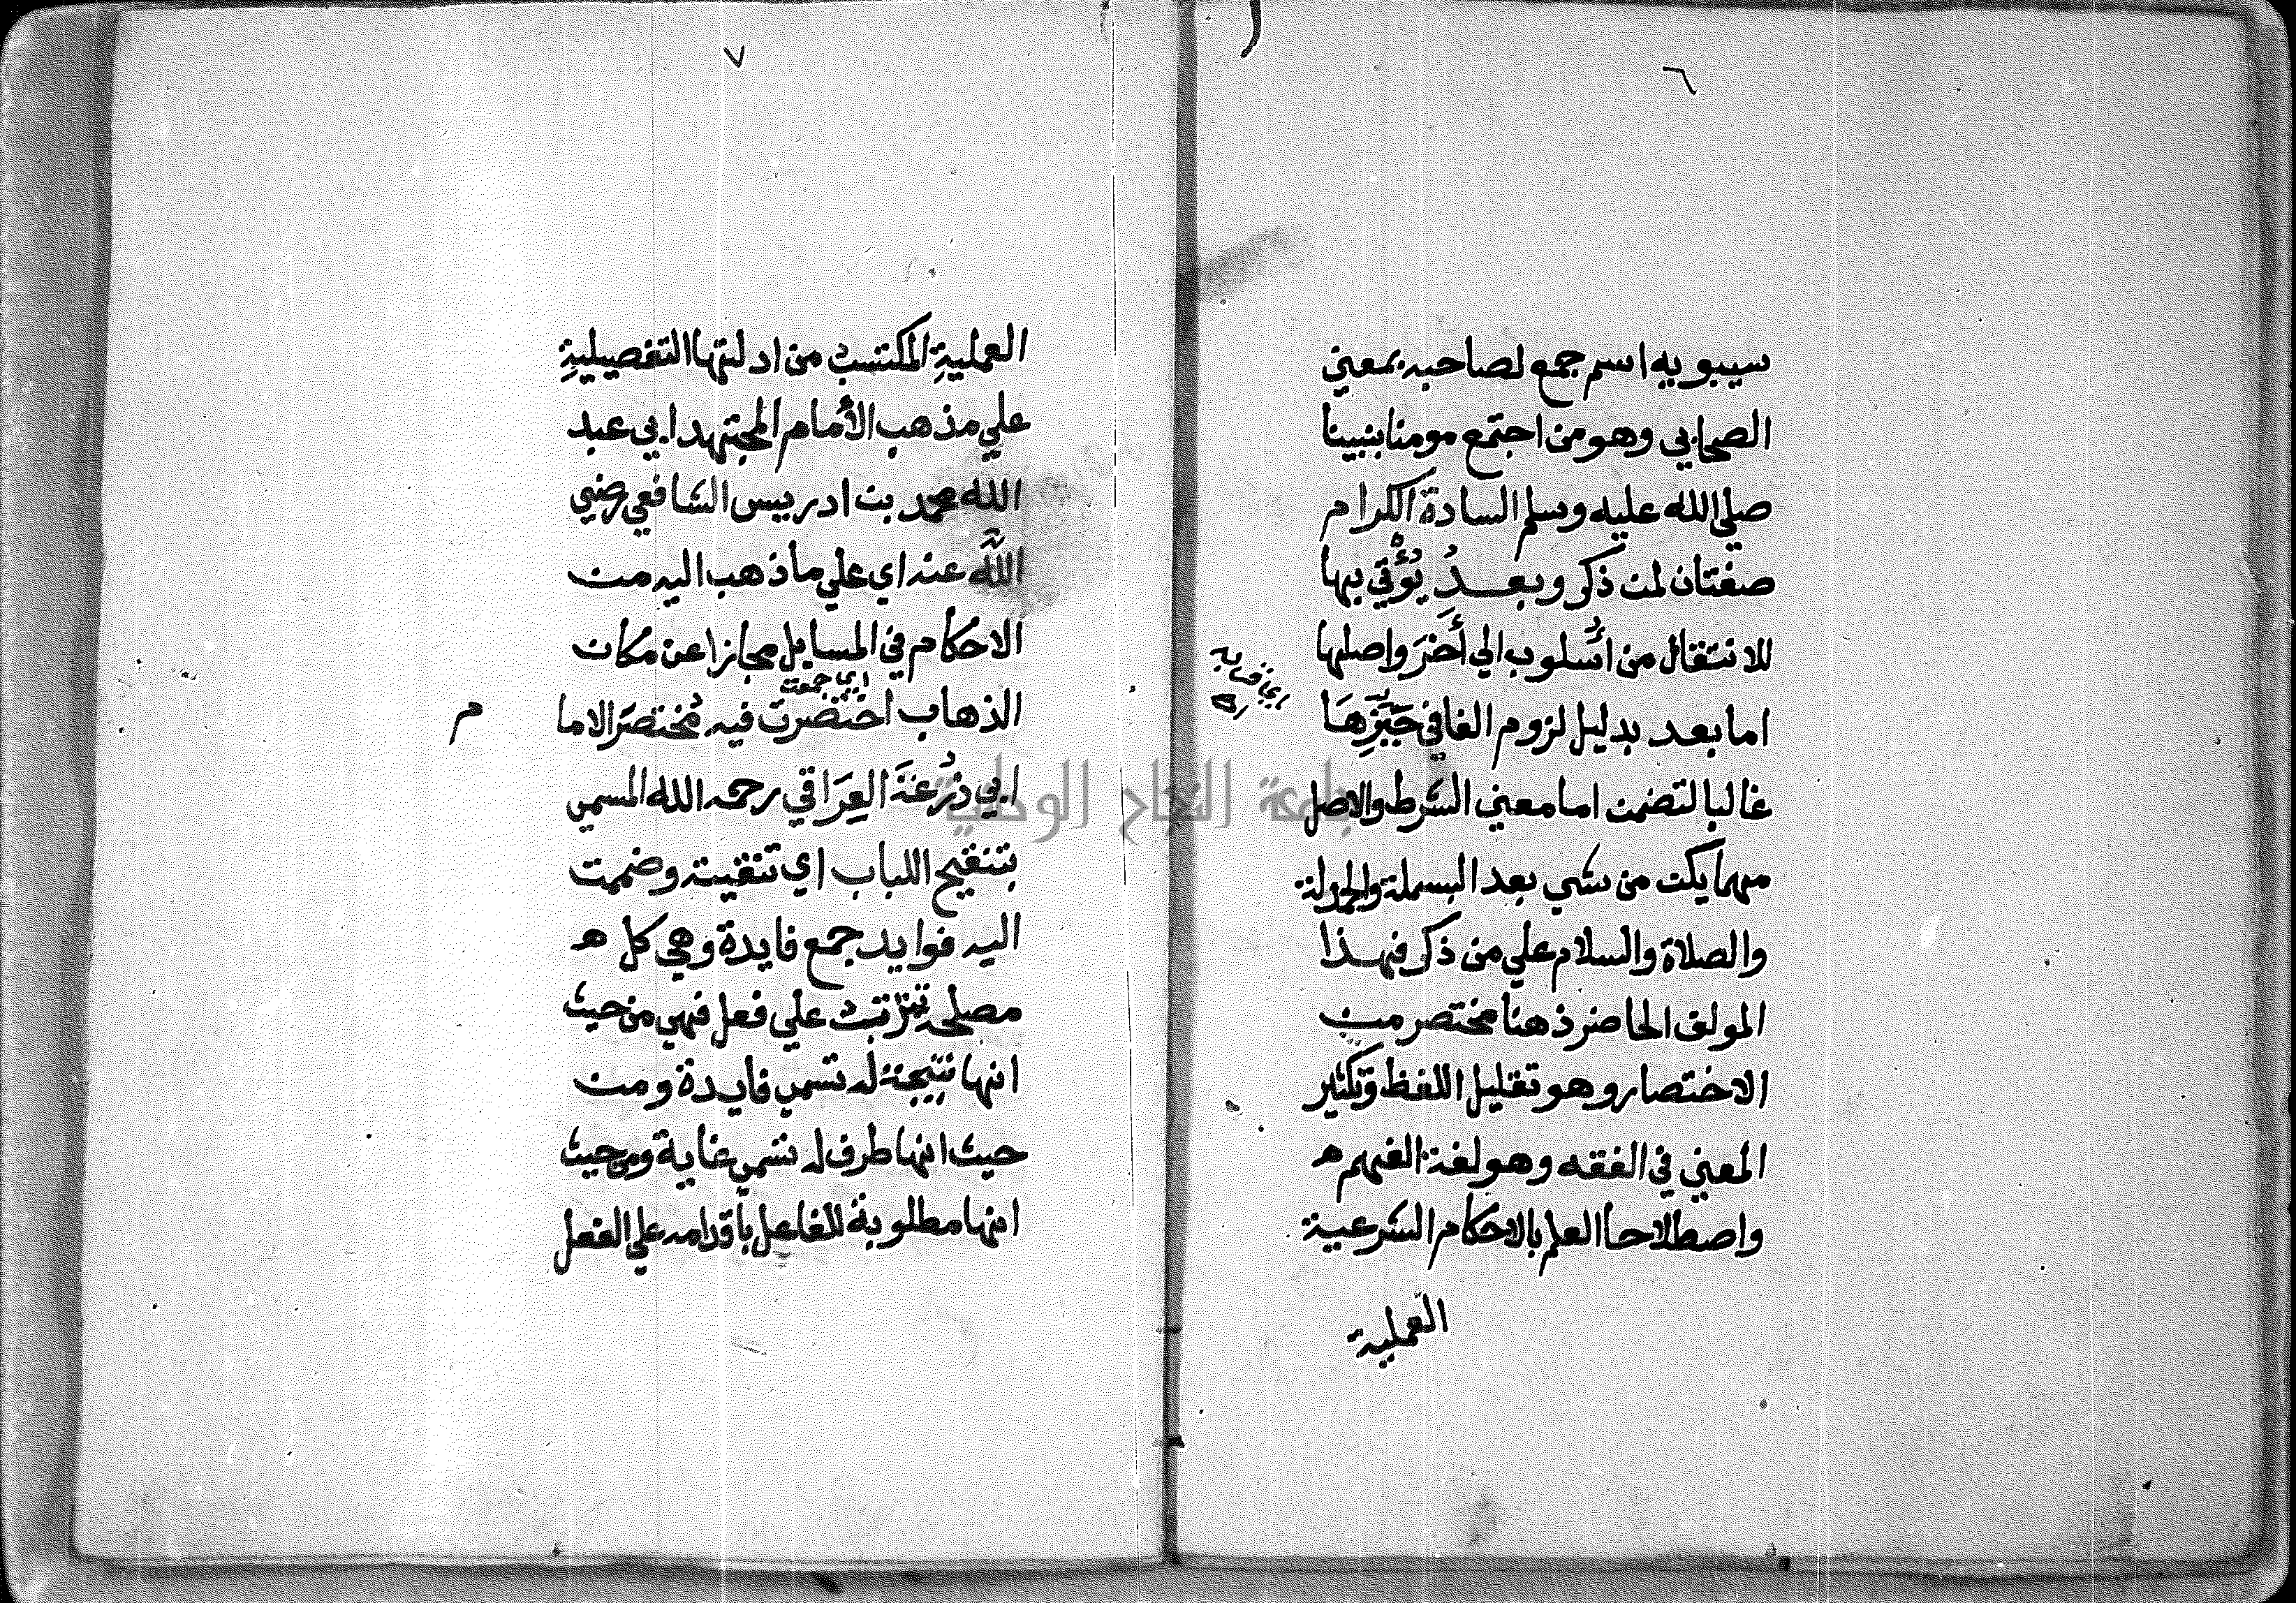 ٦
سيبويه اسم جمع لصاحبه بمعني
الصحابي وهو من اجتمع مومنا بنبينا
صلي الله عليه وسلم السادة الكرام
صفتان لمن ذكر وبعد يُؤْتي بها
للانتقال من اُسلوب الي أخرَ واصلها
اما بعد بدليل لزوم الفا في حَيّزِهَا
غالبا لتضمن اما معني الشرط والاصل
مهما يكن من شي بعد البسملة والحمدلة
والصلاة والسلام علي من ذكر فهذا
المولف الحاضر ذهنا مختصر من
الاختصار وهو تقليل اللفظ وتكثير
المعني في الفقه وهو لغة الفهم
واصطلاحا العلم بالاحكام الشرعية
العملية
٧
العملية المكتسب من ادلتها التفصيلية
علي مذهب الأمام المجتهد ابي عبد
الله محمد بن ادريس الشافعي رضي
اللَّه عنه اي علي ما ذهب اليه من
الاحكام في المسايل مجازا عن مكان
اي جمعت
الذهاب اختصرت فيه مُختصَر الاما م
ابي زُرْعَةَ العِرَاقي رحمه الله المسمي
بتنقيح اللباب اي تنقيته وضممت
اليه فوايد جمع فايدة وهي كل
مصلحة تترتب علي فعل فهي من حيث
انها نتيجة له تسمي فايدة ومن
حيث انها طرف له تسمي غاية ومن حيث
انها مطلوبة للفاعل بأقدامه علي الفعل
جامعة النجاح الوطنية